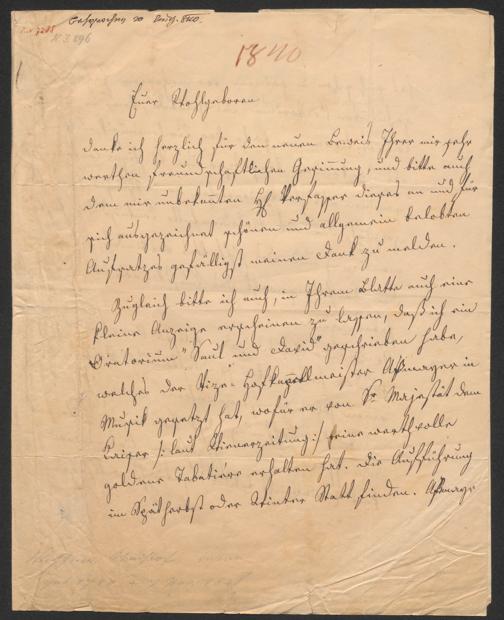 1840
Euer Wohlgeboren
danke ich herzlich für den neuen Beweis Ihrer mir sehr
werthen freundschaftlichen Gesinnung, und bitte auch
dem mir unbekannten H. Verfasser dieses an und für
sich ausgezeichnet schönen und allgemein belobten
Aufsatzes gefälligst meinen Dank zu melden.
Zugleich bitte ich auch, in Ihrem Blatte auch eine
kleine Anzeige erscheinen zu lassen, daß ich ein
Oratorium "Saul und David" geschrieben habe,
welches der Vize-Hofkapellmeister Aßmayer in
Musik gesetzt hat, wofür er von Sr. Majestät dem
Kaiser /: laut Wienerzeitung :/ eine werthvolle
goldene Tabatière erhalten hat. Die Aufführung
im Spätherbst oder Winter Statt finden. Aßmayer